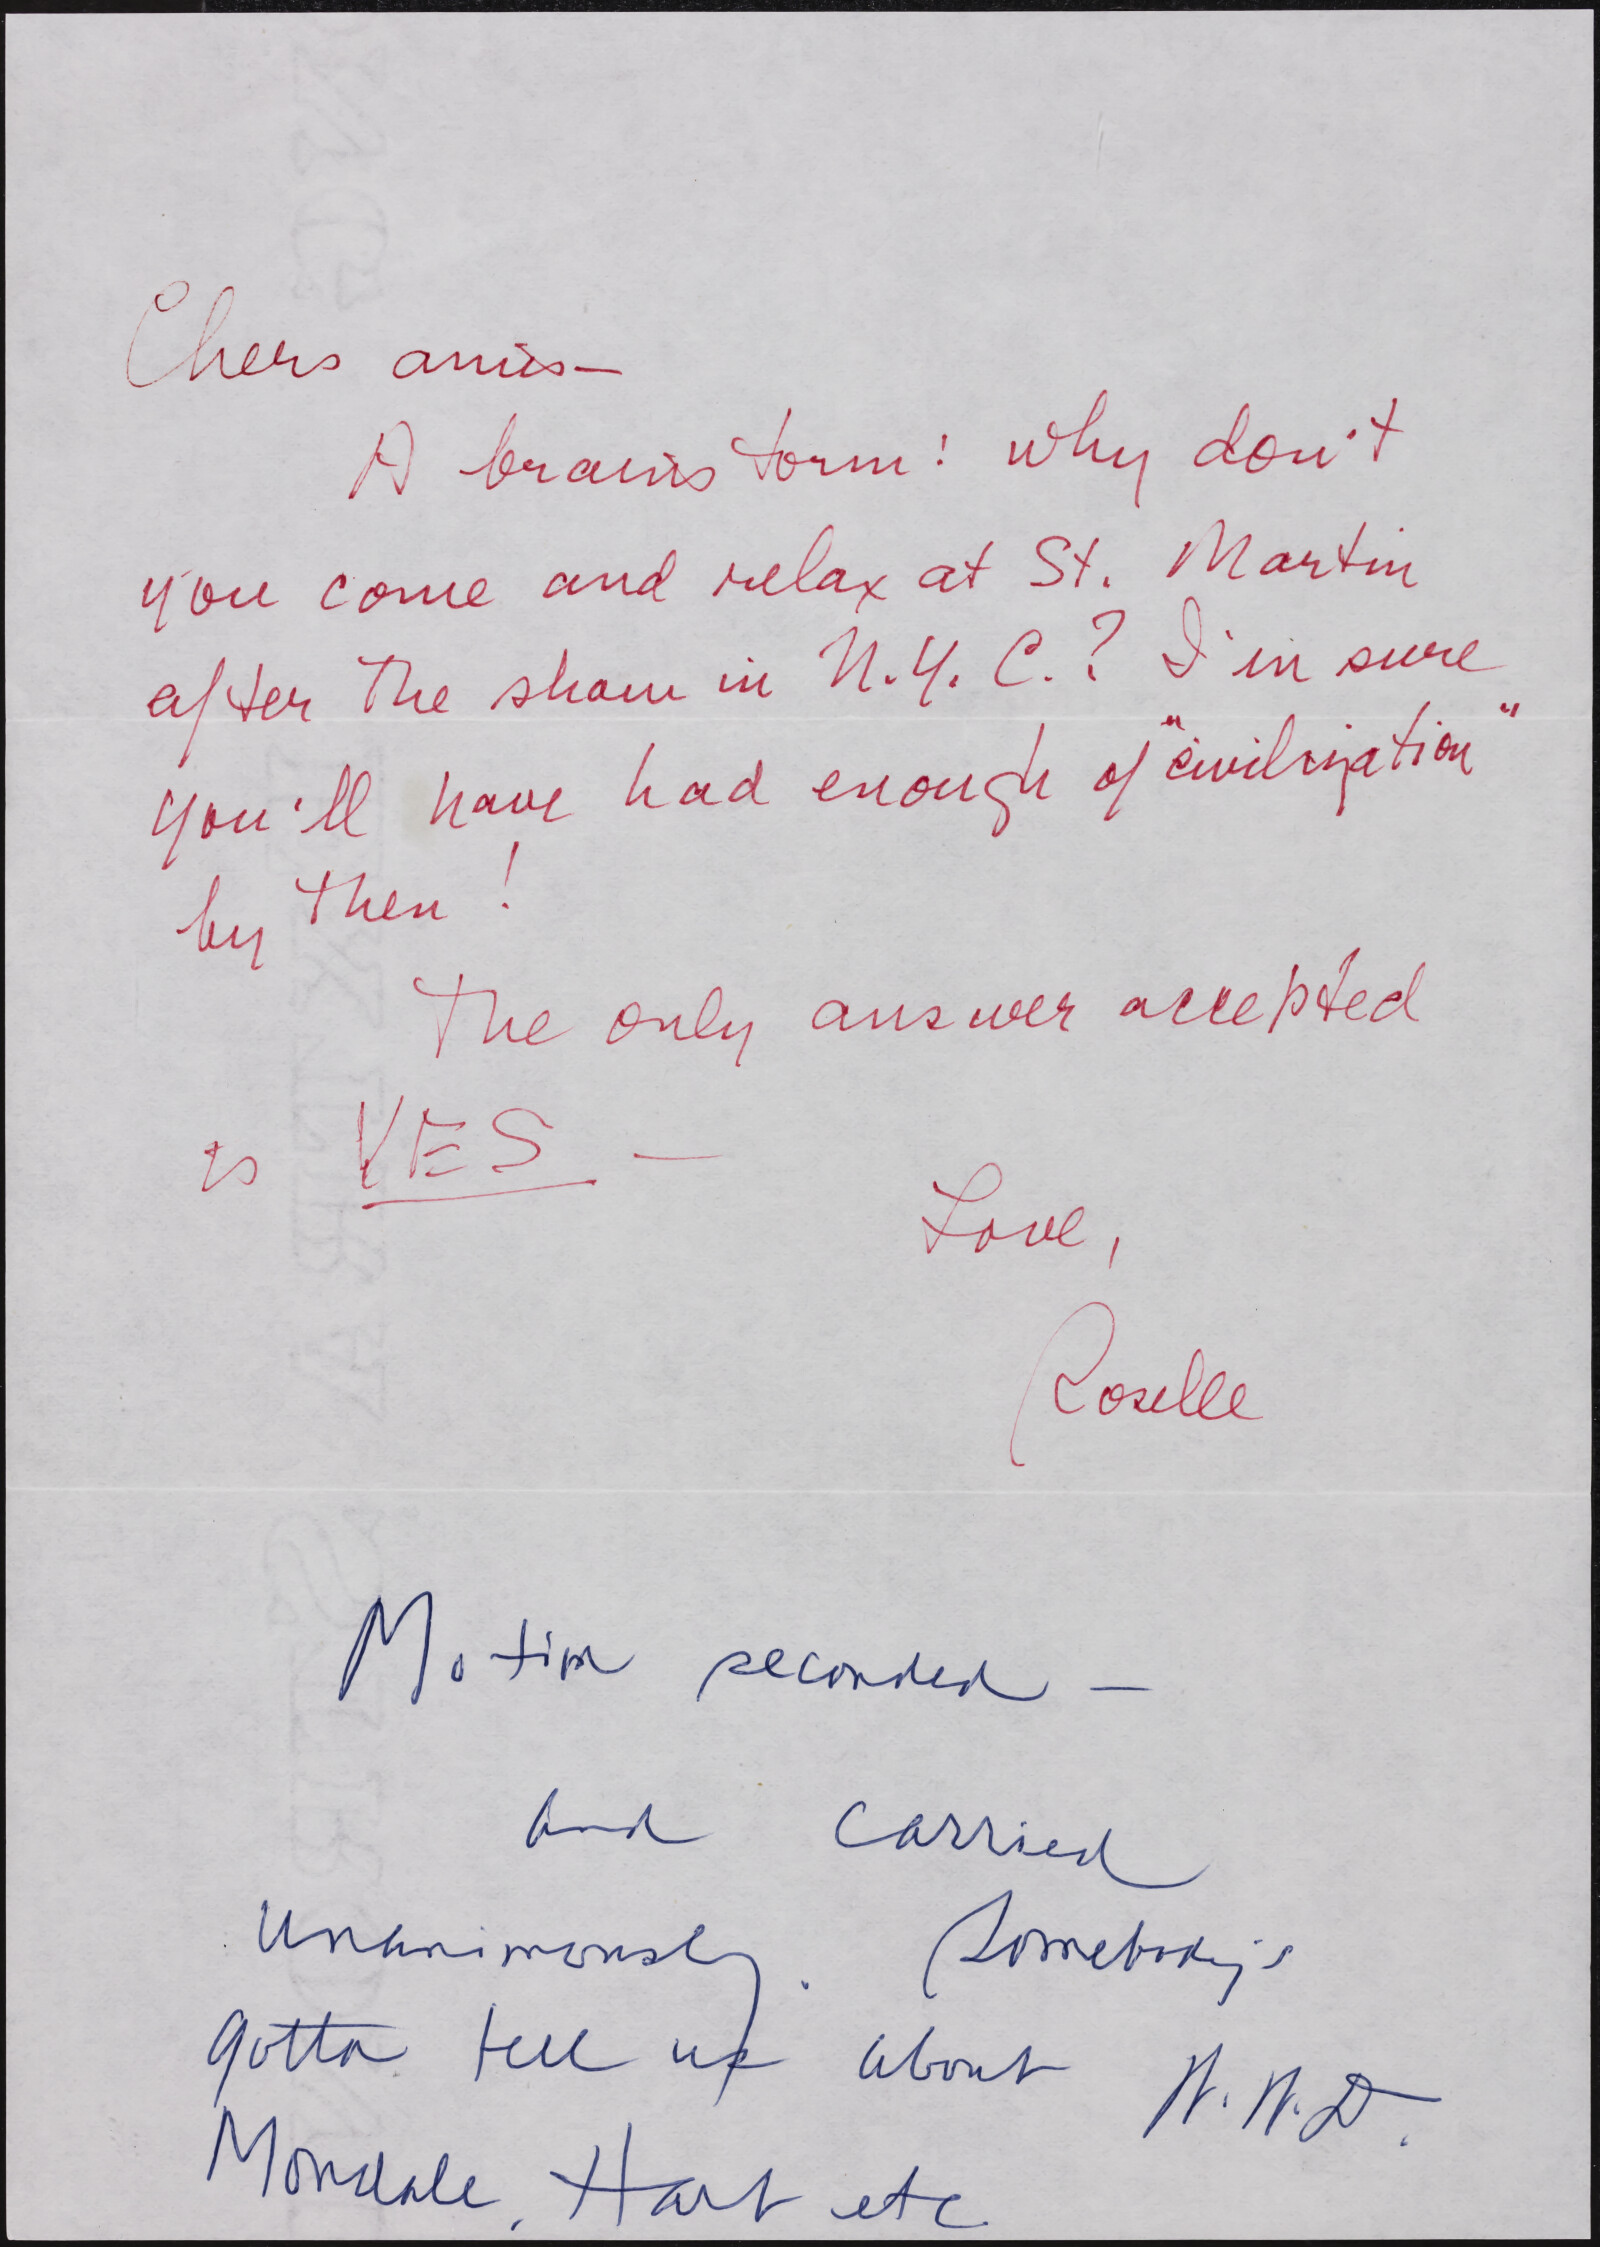 Chers amis—
A brainstorm! Why don't
you come and relax at St. Martin
after the show in N.Y.C.? I'm sure
you'll have had enough of "civilization"
by then!
The only answer accepted
is YES —
Love,
Roselle
Motion seconded —
and carried
unanimously. Somebody's
gotta tell us about
Mondale, Hart etc